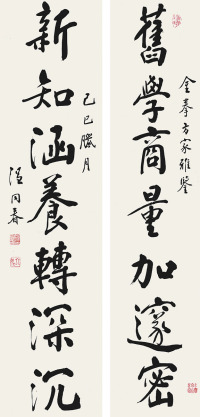 舊學商量加邃密
金拳方家雅鑒
新知涵養轉深沉
己巳臘月
温同春